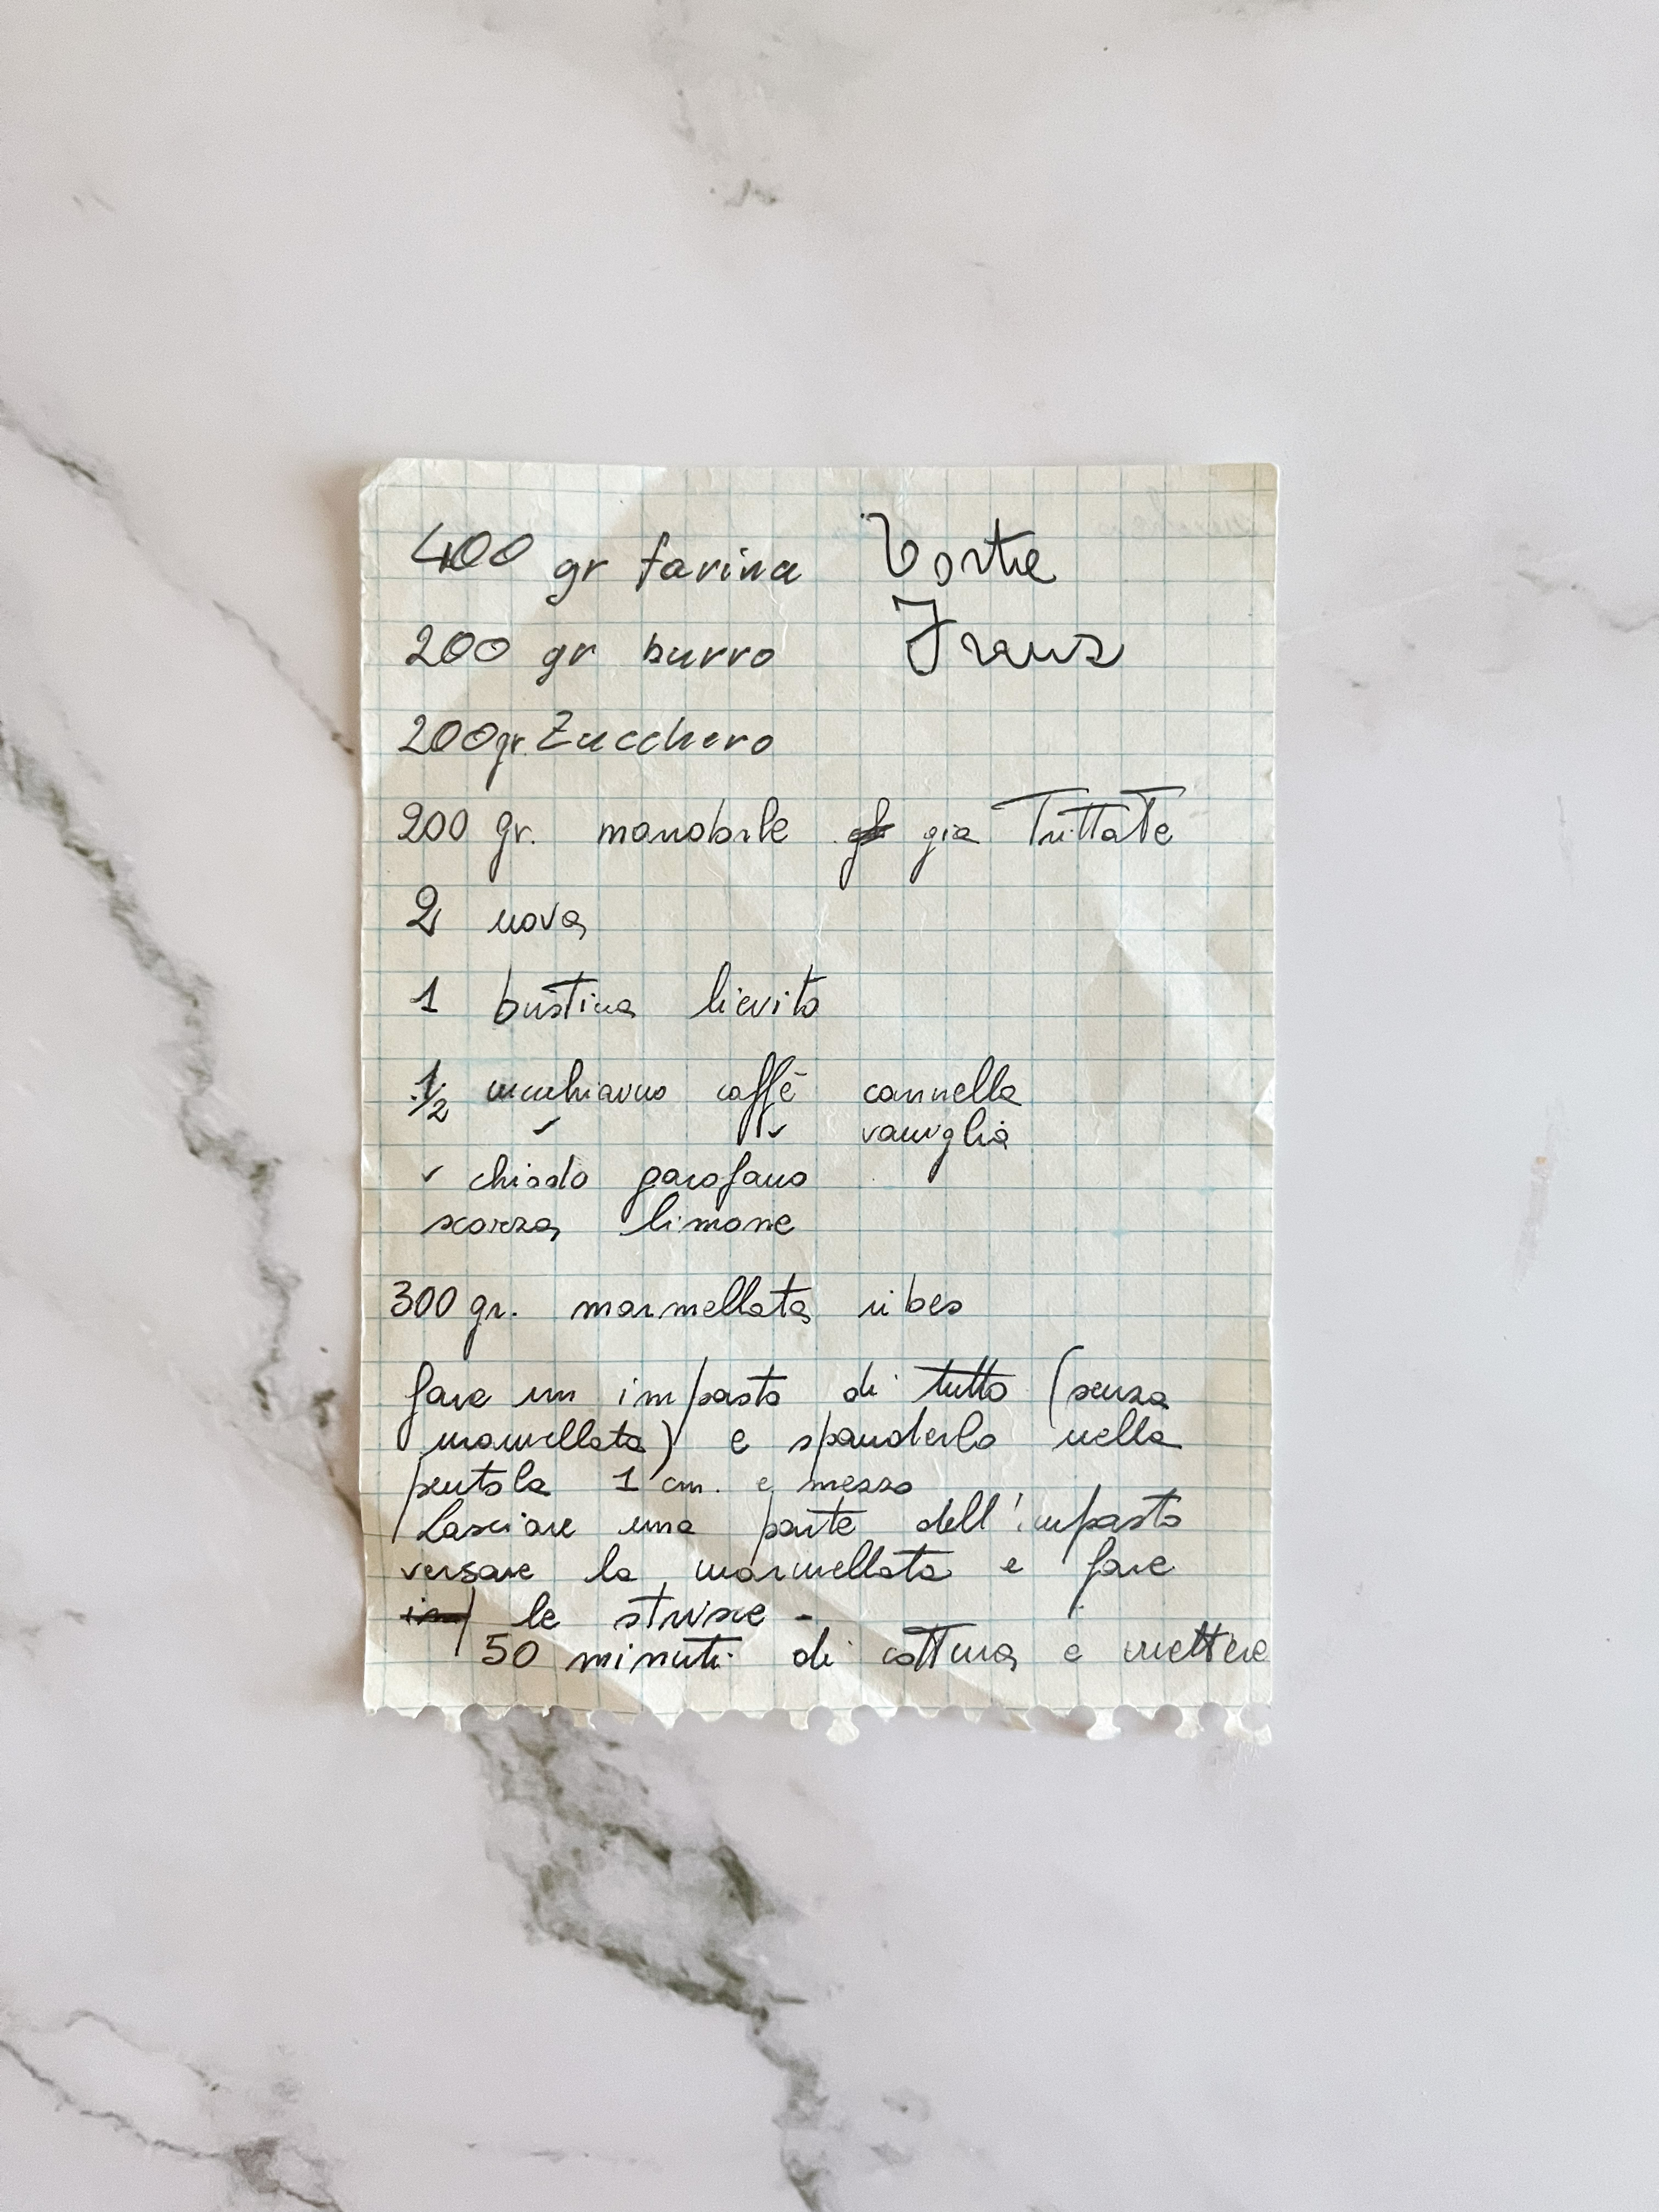 400 gr farina Torte
200 gr burro Franz
200 gr. Zucchero
200 gr. mandorle già TrittaTe
2 uova
1 bustina lievito
1/2 cucchiaino caffè cannella
" " vaniglia
" chiodo garofano
scorza limone
300 gr. marmellata ribes
fare un impasto di tutto (senza
marmellata) e spanderlo nella
pentola 1 cm. e mezzo
Lasciare una parte dell'impasto
versare la marmellata e fare
le strisce -
50 minuti di cottura e mettere